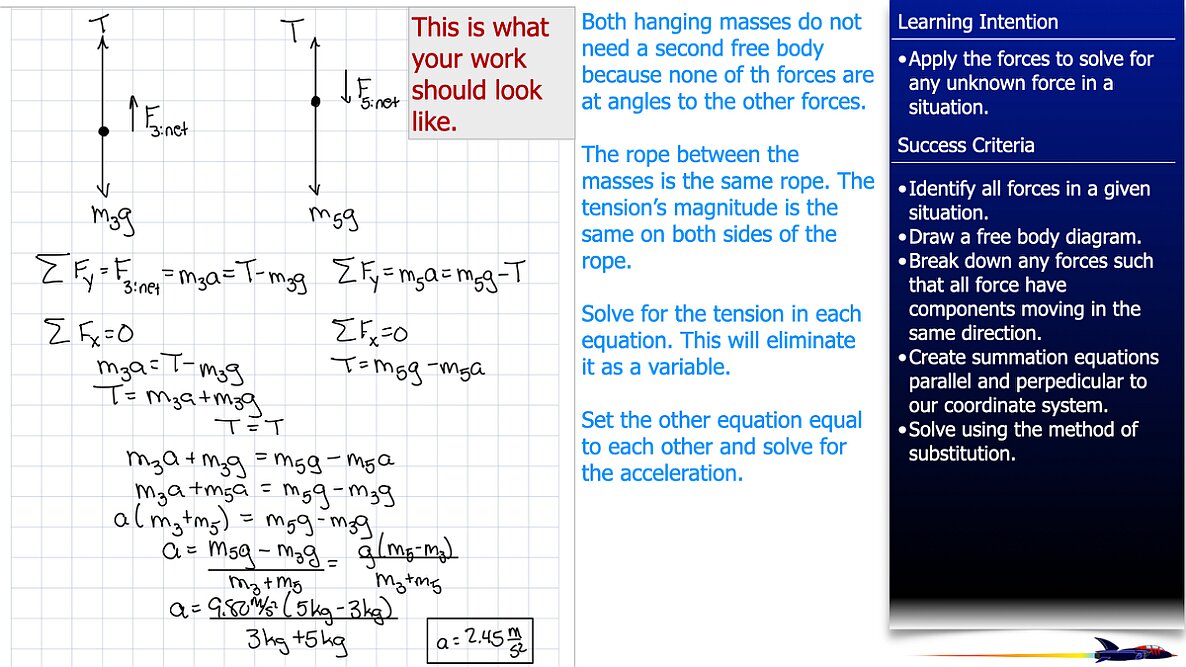 T
T
F3:net
F5:net
m3g
m5g
∑Fy = F3:net = m3a = T - m3g
∑Fy = m5a = m5g - T
∑Fx = 0
∑Fx = 0
m3a = T - m3g
T = m5g - m5a
T = m3a + m3g
T = T
m3a + m3g = m5g - m5a
m3a + m5a = m5g - m3g
a(m3 + m5) = m5g - m3g
a = m5g - m3g / m3 + m5 = g(m5 - m3) / m3 + m5
a = 9.80 m/s² (5kg - 3kg) / 3kg + 5kg
a = 2.45 m/s²
This is what
your work
should look
like.
Both hanging masses do not
need a second free body
because none of th forces are
at angles to the other forces.
The rope between the
masses is the same rope. The
tension’s magnitude is the
same on both sides of the
rope.
Solve for the tension in each
equation. This will eliminate
it as a variable.
Set the other equation equal
to each other and solve for
the acceleration.
Learning Intention
•Apply the forces to solve for
any unknown force in a
situation.
Success Criteria
•Identify all forces in a given
situation.
•Draw a free body diagram.
•Break down any forces such
that all force have
components moving in the
same direction.
•Create summation equations
parallel and perpedicular to
our coordinate system.
•Solve using the method of
substitution.